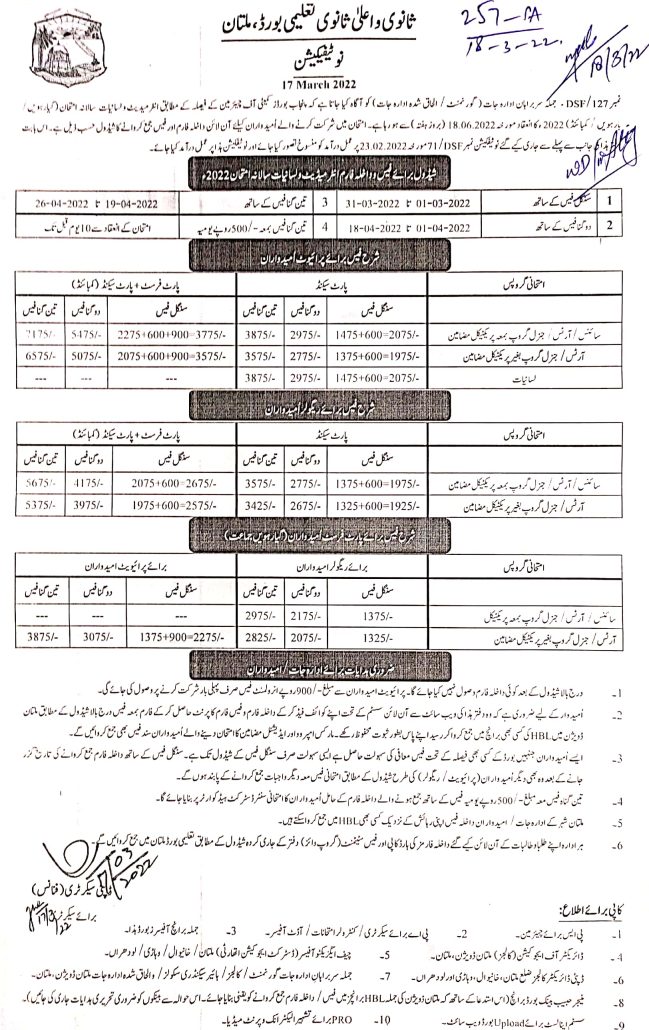 ثانوی و اعلیٰ ثانوی تعلیمی بورڈ، ملتان
257-PA
18-3-22
نوٹیفکیشن
17 March 2022
18/3/22
نمبر 127/DSF - جملہ سربراہان ادارہ جات (گورنمنٹ / الحاق شدہ ادارہ جات) کو آگاہ کیا جاتا ہے کہ پنجاب بورڈز کمیٹی آف چیئرمین کے فیصلہ کے مطابق انٹرمیڈیٹ و لسانیات سالانہ امتحان (گیارہویں /
بارہویں / کمبائنڈ) 2022ء کا انعقاد مورخہ 18.06.2022 (بروز ہفتہ) سے ہو رہا ہے۔ امتحان میں شرکت کرنے والے اُمیدواران کیلئے آن لائن داخلہ فارم اور فیس جمع کروانے کا شیڈول حسب ذیل ہے۔ اس بابت
جانب سے پہلے سے جاری کیے گئے نوٹیفکیشن نمبر 71/DSF مورخہ 23.02.2022 پر عمل درآمد کو منسوخ تصور کیا جائے اور نوٹیفکیشن ہذا پر عمل درآمد کیا جائے۔
شیڈول برائے فیس و داخلہ فارم انٹرمیڈیٹ و لسانیات سالانہ امتحان 2022ء
1 سنگل فیس کے ساتھ 01-03-2022 تا 31-03-2022 3 تین گنا فیس کے ساتھ 19-04-2022 تا 26-04-2022
2 دو گنا فیس کے ساتھ 01-04-2022 تا 18-04-2022 4 تین گنا فیس بمعہ -/500 روپے یومیہ امتحان کے انعقاد سے 10 یوم قبل تک
شرح فیس برائے پرائیویٹ اُمیدواران
امتحانی گروپس پارٹ سیکنڈ پارٹ فرسٹ + پارٹ سیکنڈ (کمبائنڈ)
سنگل فیس دو گنا فیس تین گنا فیس سنگل فیس دو گنا فیس تین گنا فیس
سائنس / آرٹس / جنرل گروپ بمعہ پریکٹیکل مضامین 1475+600=2075/- 2975/- 3875/- 2275+600+900=3775/- 5475/- 7175/-
آرٹس / جنرل گروپ بغیر پریکٹیکل مضامین 1375+600=1975/- 2775/- 3575/- 2075+600+900=3575/- 5075/- 6575/-
لسانیات 1475+600=2075/- 2975/- 3875/- --- --- ---
شرح فیس برائے ریگولر اُمیدواران
امتحانی گروپس پارٹ سیکنڈ پارٹ فرسٹ + پارٹ سیکنڈ (کمبائنڈ)
سنگل فیس دو گنا فیس تین گنا فیس سنگل فیس دو گنا فیس تین گنا فیس
سائنس / آرٹس / جنرل گروپ بمعہ پریکٹیکل مضامین 1375+600=1975/- 2775/- 3575/- 2075+600=2675/- 4175/- 5675/-
آرٹس / جنرل گروپ بغیر پریکٹیکل مضامین 1325+600=1925/- 2675/- 3425/- 1975+600=2575/- 3975/- 5375/-
شرح فیس برائے پارٹ فرسٹ اُمیدواران (گیارہویں جماعت)
امتحانی گروپس برائے ریگولر اُمیدواران برائے پرائیویٹ امیدواران
سنگل فیس دو گنا فیس تین گنا فیس سنگل فیس دو گنا فیس تین گنا فیس
سائنس / آرٹس / جنرل گروپ بمعہ پریکٹیکل 1375/- 2175/- 2975/- --- --- ---
آرٹس / جنرل گروپ بغیر پریکٹیکل مضامین 1325/- 2075/- 2825/- 1375+900=2275/- 3075/- 3875/-
ضروری ہدایات برائے ادارہ جات / امیدواران
1۔ درج بالا شیڈول کے بعد کوئی داخلہ فارم وصول نہیں کیا جائے گا۔ پرائیویٹ امیدواران سے مبلغ -/900 روپے انرولمنٹ فیس صرف پہلی بار شرکت کرنے پر وصول کی جائے گی۔
2۔ اُمیدوار کے لیے ضروری ہے کہ وہ دفتر ہذا کی ویب سائٹ سے آن لائن سسٹم کے تحت اپنے کوائف فیڈ کر کے داخلہ فارم و فیس فارم کا پرنٹ حاصل کر کے فارم بمعہ فیس درج بالا شیڈول کے مطابق ملتان
ڈویژن میں HBL کی کسی بھی برانچ میں جمع کروا کر رسید اپنے پاس بطور ثبوت محفوظ رکھے۔ مارکس امپروو اور ایڈیشنل مضامین کا امتحان دینے والے امیدواران سند فیس بھی جمع کروائیں گے۔
3۔ ایسے اُمیدواران جنہیں بورڈ کے کسی بھی فیصلہ کے تحت فیس معافی کی سہولت حاصل ہے ایسی سہولت صرف سنگل فیس کے شیڈول تک ہے۔ سنگل فیس کے ساتھ داخلہ فارم جمع کروانے کی تاریخ گزر
جانے کے بعد وہ بھی دیگر اُمیدواران (پرائیویٹ / ریگولر) کی طرح شیڈول کے مطابق امتحانی فیس معہ دیگر واجبات جمع کروانے کے پابند ہوں گے۔
4۔ تین گنا فیس معہ مبلغ -/500 روپے یومیہ فیس کے ساتھ جمع ہونے والے داخلہ فارم کے حامل اُمیدواران کا امتحانی سنٹر ڈسٹرکٹ ہیڈ کوارٹر پر بنایا جائے گا۔
5۔ ملتان شہر کے ادارہ جات / امیدواران داخلہ فیس اپنی رہائش کے نزدیک کسی بھی HBL میں جمع کروا سکتے ہیں۔
6۔ ہر ادارہ اپنے طلباء و طالبات کے آن لائن کیے گئے داخلہ فارمز کی ہارڈ کاپی اور فیس سٹیٹمنٹ (گروپ وائز) دفتر کے جاری کردہ شیڈول کے مطابق تعلیمی بورڈ ملتان میں جمع کروائیں گے۔
03
2022
ڈپٹی سیکرٹری (فنانس)
برائے سیکرٹری
17/3/22
کاپی برائے اطلاع:
1۔ پی ایس برائے چیئرمین۔ 2۔ پی اے برائے سیکرٹری / کنٹرولر امتحانات / آڈٹ آفیسر۔ 3۔ جملہ برانچ آفیسرز بورڈ ہذا۔
4۔ ڈائریکٹر آف ایجوکیشن (کالجز) ملتان ڈویژن، ملتان۔ 5۔ چیف ایگزیکٹو آفیسر (ڈسٹرکٹ ایجوکیشن اتھارٹی) ملتان / خانیوال / وہاڑی / لودھراں۔
6۔ ڈپٹی ڈائریکٹر کالجز ضلع ملتان، خانیوال، وہاڑی اور لودھراں۔ 7۔ جملہ سربراہان ادارہ جات گورنمنٹ / کالجز / ہائیر سیکنڈری سکولز / والحاق شدہ ادارہ جات ملتان ڈویژن، ملتان۔
8۔ منیجر حبیب بینک بورڈ برانچ (اس استدعا کے ساتھ کہ ملتان ڈویژن کی جملہ HBL برانچز میں فیس / داخلہ فارم جمع کروانے کو یقینی بنایا جائے۔ اس حوالہ سے بینکوں کو ضروری تحریری ہدایات جاری کی جائیں)۔
9۔ سسٹم اینالسٹ برائے Upload بورڈ ویب سائٹ۔ 10۔ PRO برائے تشہیر الیکٹرانک و پرنٹ میڈیا۔